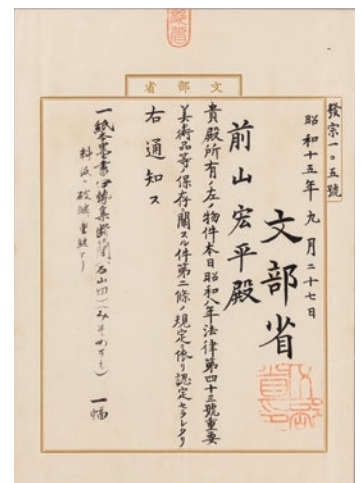 文部省
發宗一〇五號
昭和十五年九月二十七日
文部省
前山宏平殿
貴殿所有ノ左ノ物件本日昭和八年法律第四十三號重要
美術品等ノ保存ニ關スル件第二條ノ規定ニ依リ認定セラレタリ
右通知ス
一紙本墨書伊勢集断簡(石山切) 一幅
料紙ニ破継、重継アリ